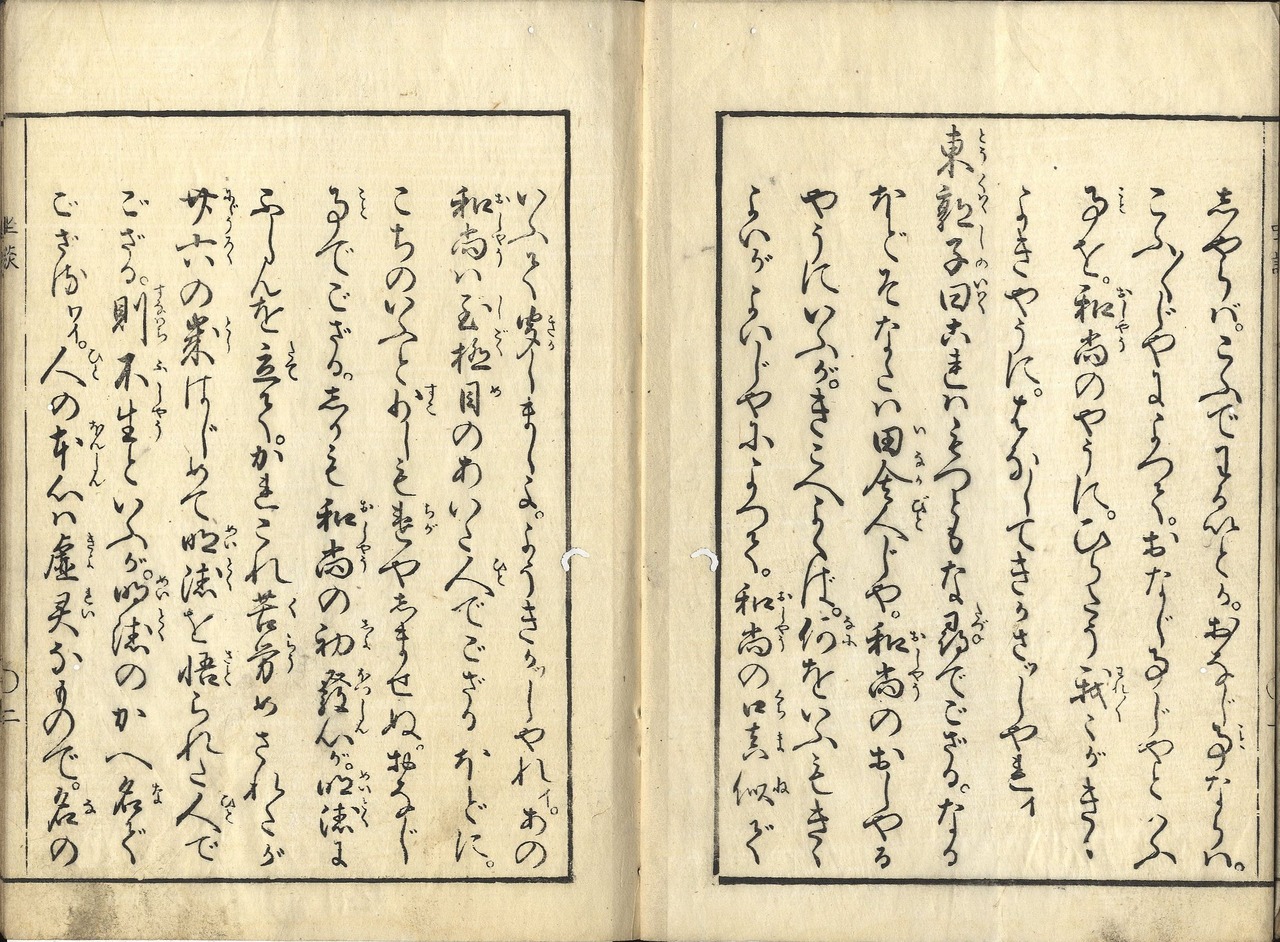 しやらバ。こふでヲリいとか。おなじ事ならハ。
こふ〳〵じやによつて。おなじ事じやといふ
事を。和尚のやうに。ひつたり我〳〵がきゝ
よきやうに。はなしてきかさつしやれイ
東郭子曰これハもつともな尋でござる。なる
ほどそなたハ田舎人じや。和尚のおしやる
やうにいふが。きこへよくば。何をいふもきく
よいがよいじやによつて。和尚の口真似で
いふて聞しましよ。よふきかつしやれイ。あの
和尚ハ至極目のあいた人でござるほどに。
こちのいふとすこしも違やしませぬ。おなじ
事でござる。しかも和尚の初發心が。明徳に
ふしんを立て。かれこれ苦労めされたが
廿六の歳はじめて明徳を悟られた人で
ござる。則不生といふが。明徳のかへ名で
ござるワイ。人の本心ハ虚灵なもので。名の